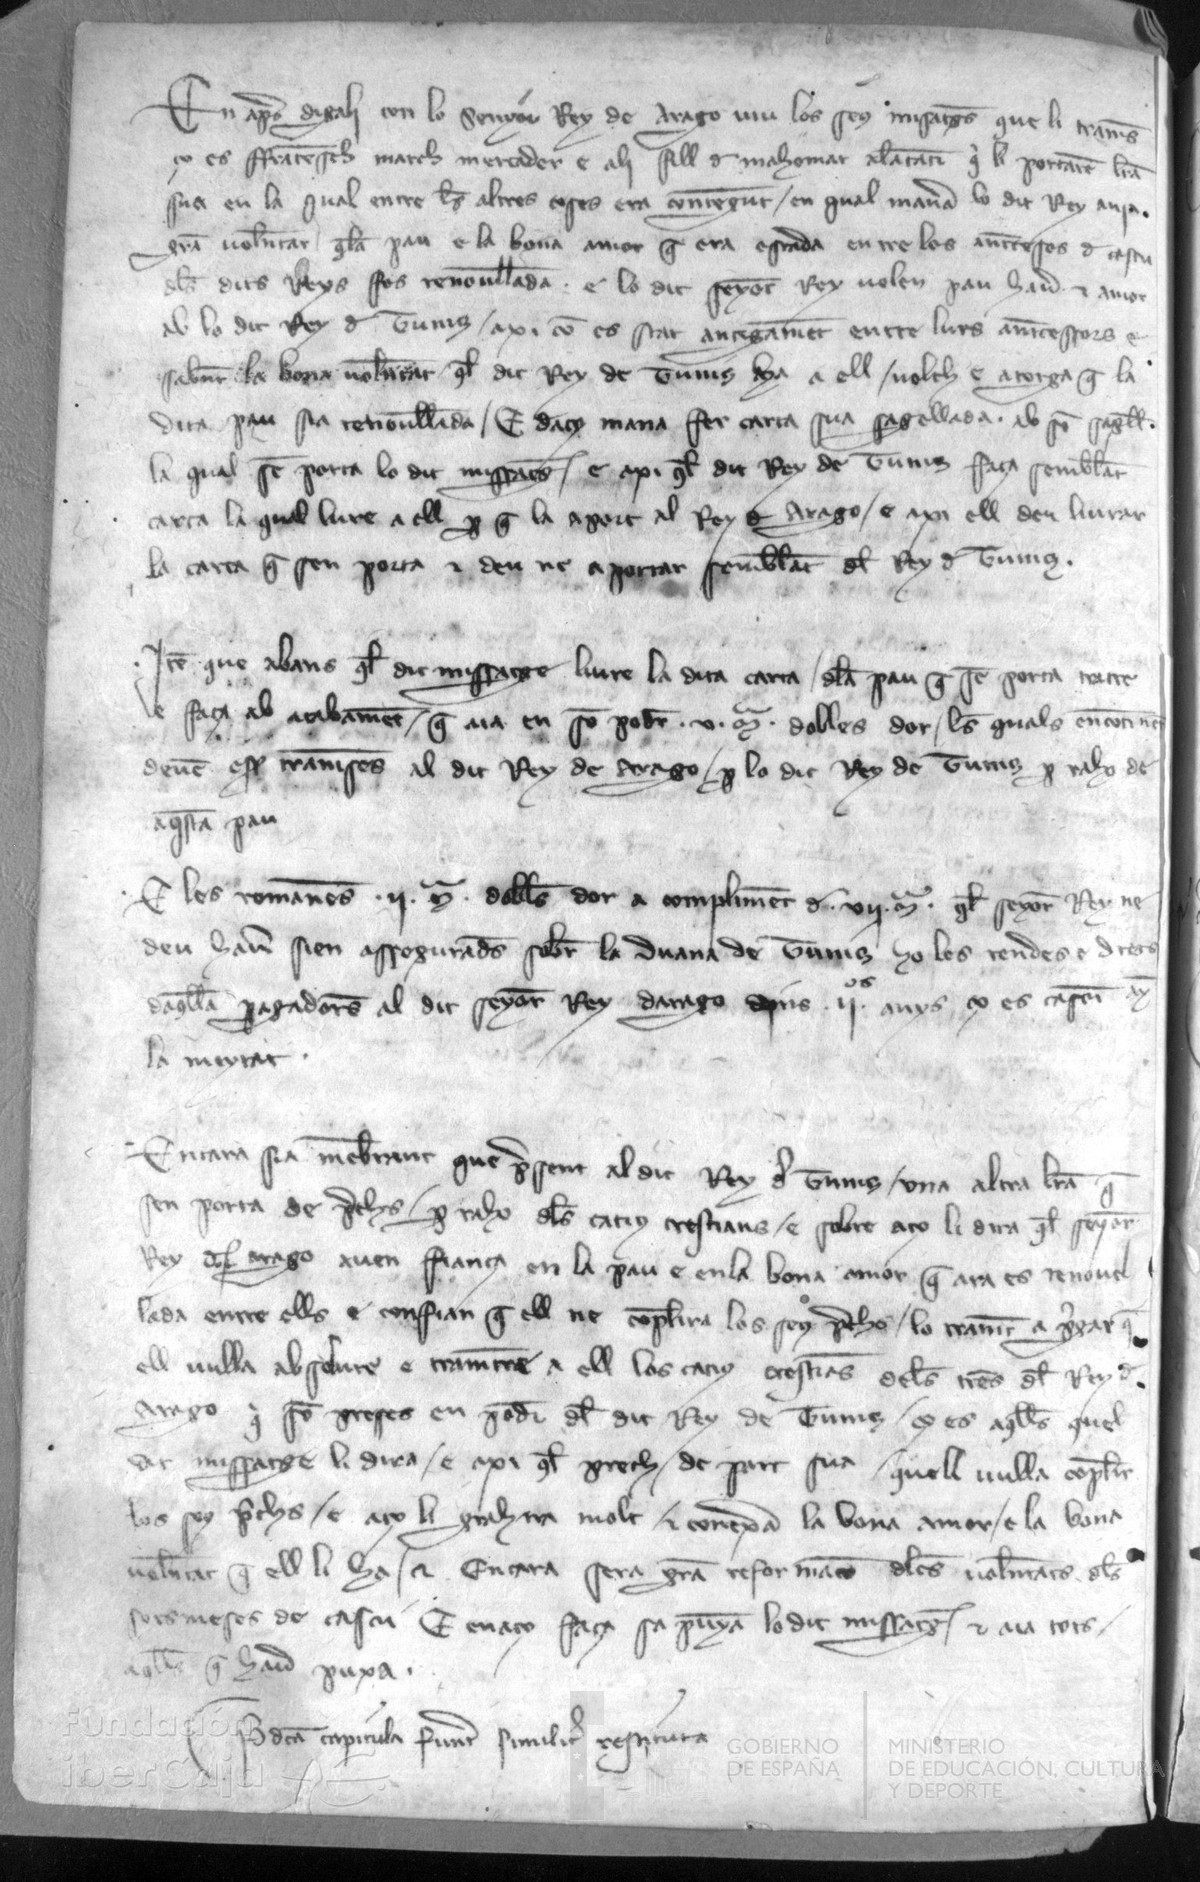 En apres digali con lo Senyor Rey de Arago viu los seus misatges que li trames
ço es ffrancesch march mercader e ali fill de mahomat qui li portaren letra
sua en la qual entre les altres coses era contengut / en qual manera lo dit Rey auia
gran volentat quela pau e la bona amor que era estada entre los antecesors de cascu
dels dits Reys fos renouellada . e lo dit seyor Rey volen pau hauer & amor
ab lo dit Rey de Tuniz / axi com es stat antigament entre lurs antecessors e
sabent la bona volentat quel dit Rey de Tuniz ha a ell / volch e atorga que la
dita pau sia renouellada / E daço mana fer carta sua sagellada . ab son sagell .
la qual sen porta lo dit missatge / e axi quel dit Rey de Tuniz faça semblant
carta la qual liure a ell per que la aport al Rey de Arago / e axi ell deu liurar
la carta que sen porta & deu ne aportar semblant del Rey de Tuniz .
Item que abans quel dit missatge liure la dita carta / dela pau que sen porta tracte
e faça ab acabament / que aia en son poder . v . m . dobles dor / les quals encontinent
deuen esser trameses al dit Rey de Arago / per lo dit Rey de Tuniz per raho de
aquesta pau
E les romanens . ij . m . dobles dor a compliment de . vij . m . quel seyor Rey ne
deu hauer sien assegurades sobre la Duana de Tuniz ho les rendes e drets
daquella pagadores al dit seyor Rey darago dins . ij.os anys ço es cascun any
la meytat .
Encara sia membrant que present al dit Rey de Tuniz / vna altra letra que
sen porta de prechs / per raho dels catius crestians / e sobre aço li dira quel seyor
Rey de arago auen fiança en la pau e en la bona amor que ara es renouel
lada entre ells e confian que ell ne complira los seus prechs / lo tramet a pregar que
ell vulla absolure e trametre a ell los catius crestians deles terres del Rey de
Arago qui son preses en poder del dit Rey de Tuniz / ço es aquells quel
dit missatge li dira / e axi quel prech / de part sua / quell vulla complir
los seus prechs / e aço li grahira molt / & conexera la bona amor / e la bona
volentat que ell li ha / & Encara sera gran reformacio deles volentats dels
sotsmeses de cascu E en aço faça sa punya lo dit missatge / & aia tots
aquells que hauer puxa .
Predicta capitula fuerunt similiter restituta
Fundación
iberCaja
GOBIERNO
DE ESPAÑA
MINISTERIO
DE EDUCACIÓN, CULTURA
Y DEPORTE